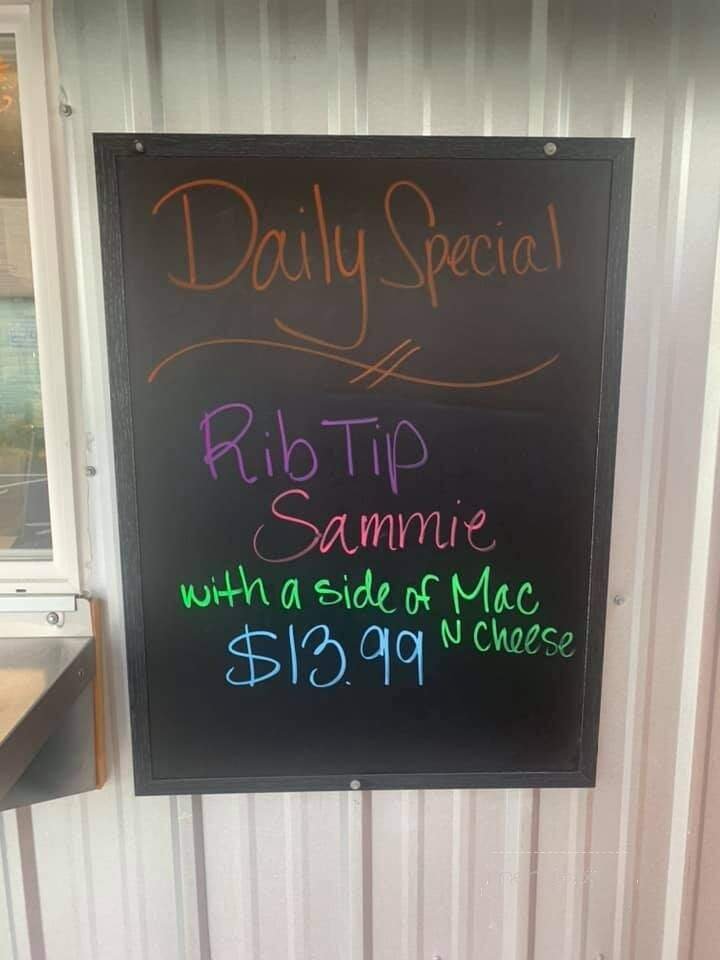 Daily Special
Rib Tip
Sammie
with a side of Mac
N Cheese
$13.99